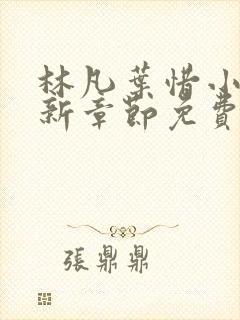 林凡葉惜小
新章節免費
張鼎鼎